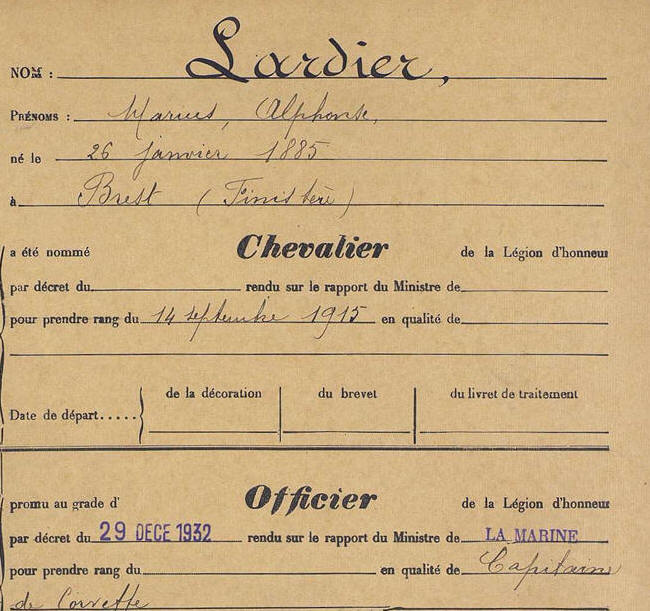 NOM : Lardier,
PRÉNOMS : Marius, Alphonse,
né le 26 janvier 1885
à Brest (Finistère)
a été nommé Chevalier de la Légion d'honneur
par décret du rendu sur le rapport du Ministre de
pour prendre rang du 14 septembre 1915 en qualité de
de la décoration du brevet du livret de traitement
Date de départ.....
promu au grade d' Officier de la Légion d'honneur
par décret du 29 DECE 1932 rendu sur le rapport du Ministre de LA MARINE
pour prendre rang du en qualité de Capitaine
de Corvette